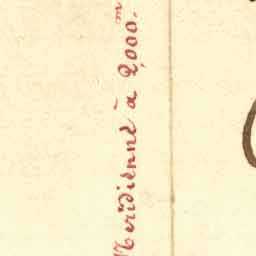 Meridienne à 2,000.m